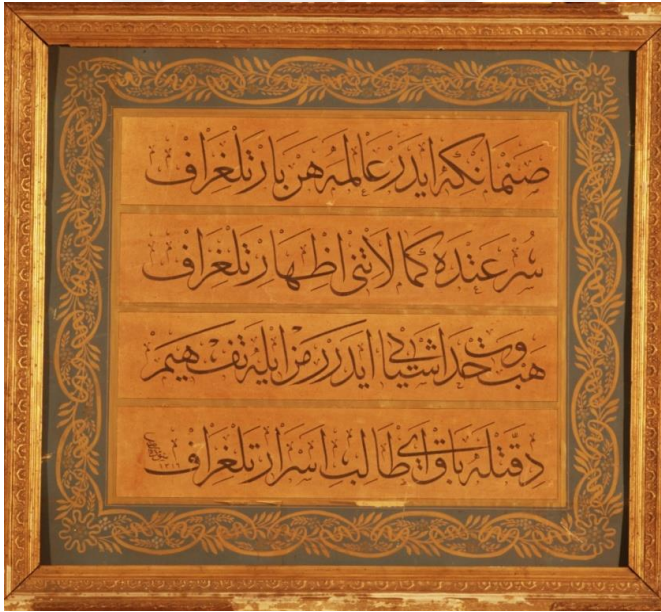 صنما نكه ايدر عالمه هر بار تلغراف
سرعتده كمالاتنى اظهار تلغراف
وحدت اشيايى ايدر رمز ايله تفهيم
دقتله باق اى طالب اسرار تلغراف
١٣١٢